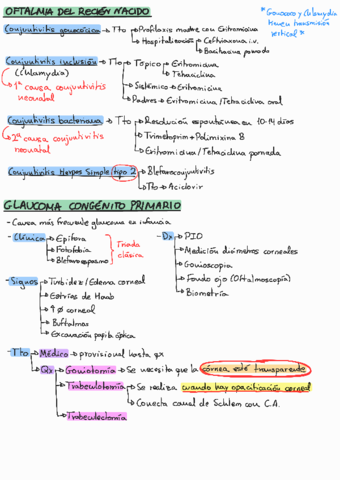 OFTALMIA DEL RECIÉN NACIDO
* Gonococo y Chlamydia
tienen transmisión
vertical *
Conjuntivitis gonocócica → Tto → Profilaxis madre con Eritromicina
→ Hospitalización → Ceftriaxona i.v.
→ Bacitracina pomada
Conjuntivitis inclusión → Tto → Tópico → Eritromicina
(Chlamydia) → Tetraciclina
1ª causa conjuntivitis
neonatal
→ Sistémico → Eritromicina
→ Padres → Eritromicina/Tetraciclina oral
Conjuntivitis bacteriana → Tto → Resolución espontánea en 10-14 días
2ª causa conjuntivitis
neonatal
→ Trimetoprim + Polimixina B
→ Eritromicina/Tetraciclina pomada
Conjuntivitis Herpes Simple tipo 2 → Blefaroconjuntivitis
→ Tto → Aciclovir
GLAUCOMA CONGÉNITO PRIMARIO
- Causa más frecuente glaucoma en infancia
- Clínica → Epífora
→ Fotofobia
→ Blefaroespasmo
Triada
clásica
- Dx → PIO
→ Medición diámetros corneales
→ Gonioscopia
→ Fondo ojo (Oftalmoscopía)
→ Biometría
- Signos → Turbidez/Edema corneal
→ Estrías de Haab
→ ↑ Ø corneal
→ Buftalmos
→ Excavación papila óptica
- Tto → Médico → provisional hasta qx
→ Qx → Goniotomía → Se necesita que la córnea esté transparente
→ Trabeculotomía → Se realiza cuando hay opacificación corneal
→ Conecta canal de Schlem con C.A.
→ Trabeculectomía